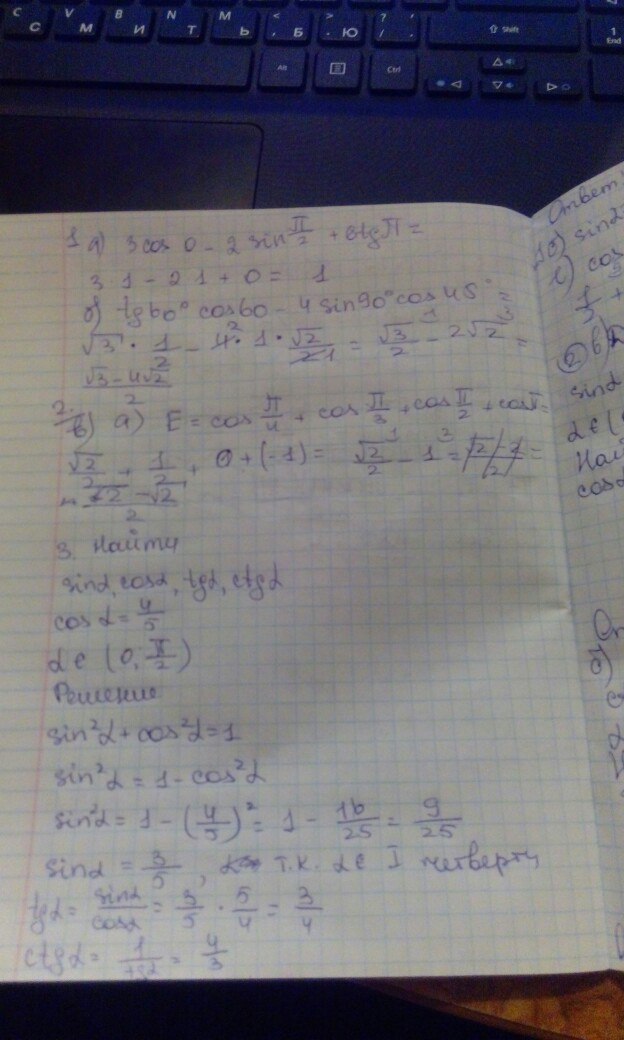 C С
V М
B И
N Т
M Ь
< , Б
> . Ю
? / ,
⇧ Shift
1 End
Alt
Ctrl
1 а) 3 cos 0 - 2 sin π/2 + ctg π =
3·1 - 2·1 + 0 = 1
б) tg 60° cos 60 - 4 sin 90° cos 45° =
√3 · 1/2 - 4 · 1 · √2/2 = √3/2 - 2√2 =
(√3 - 4√2)/2
2.
в) а) E = cos π/4 + cos π/3 + cos π/2 + cos π =
√2/2 + 1/2 + 0 + (-1) = √2/2 - 1 =
3. Найти
sinα, cosα, tgα, ctgα
cos α = 4/5
α ∈ (0; π/2)
Решение
sin²α + cos²α = 1
sin²α = 1 - cos²α
sin²α = 1 - (4/5)² = 1 - 16/25 = 9/25
sinα = 3/5, т.к. α ∈ I четверти
tgα = sinα/cosα = 3/5 · 5/4 = 3/4
ctgα = 1/tgα = 4/3
Ответ:
sinα
cos
sinα
α ∈ (
Най
cosα
б)